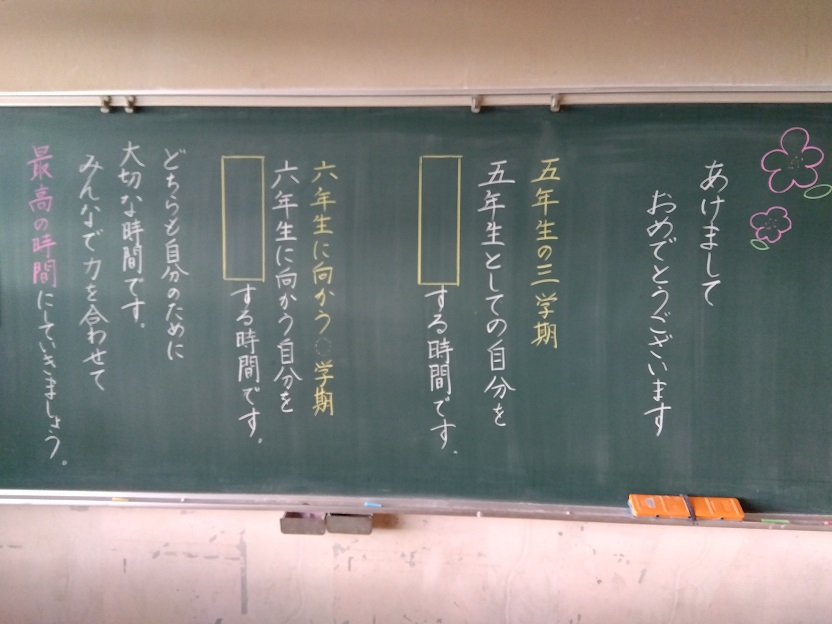 あけまして
おめでとうございます
五年生の三学期
五年生としての自分を
する時間です.
六年生に向かう○学期
六年生に向かう自分を
する時間です.
どちらも自分のために
大切な時間です.
みんなで力を合わせて
最高の時間にしていきましょう。